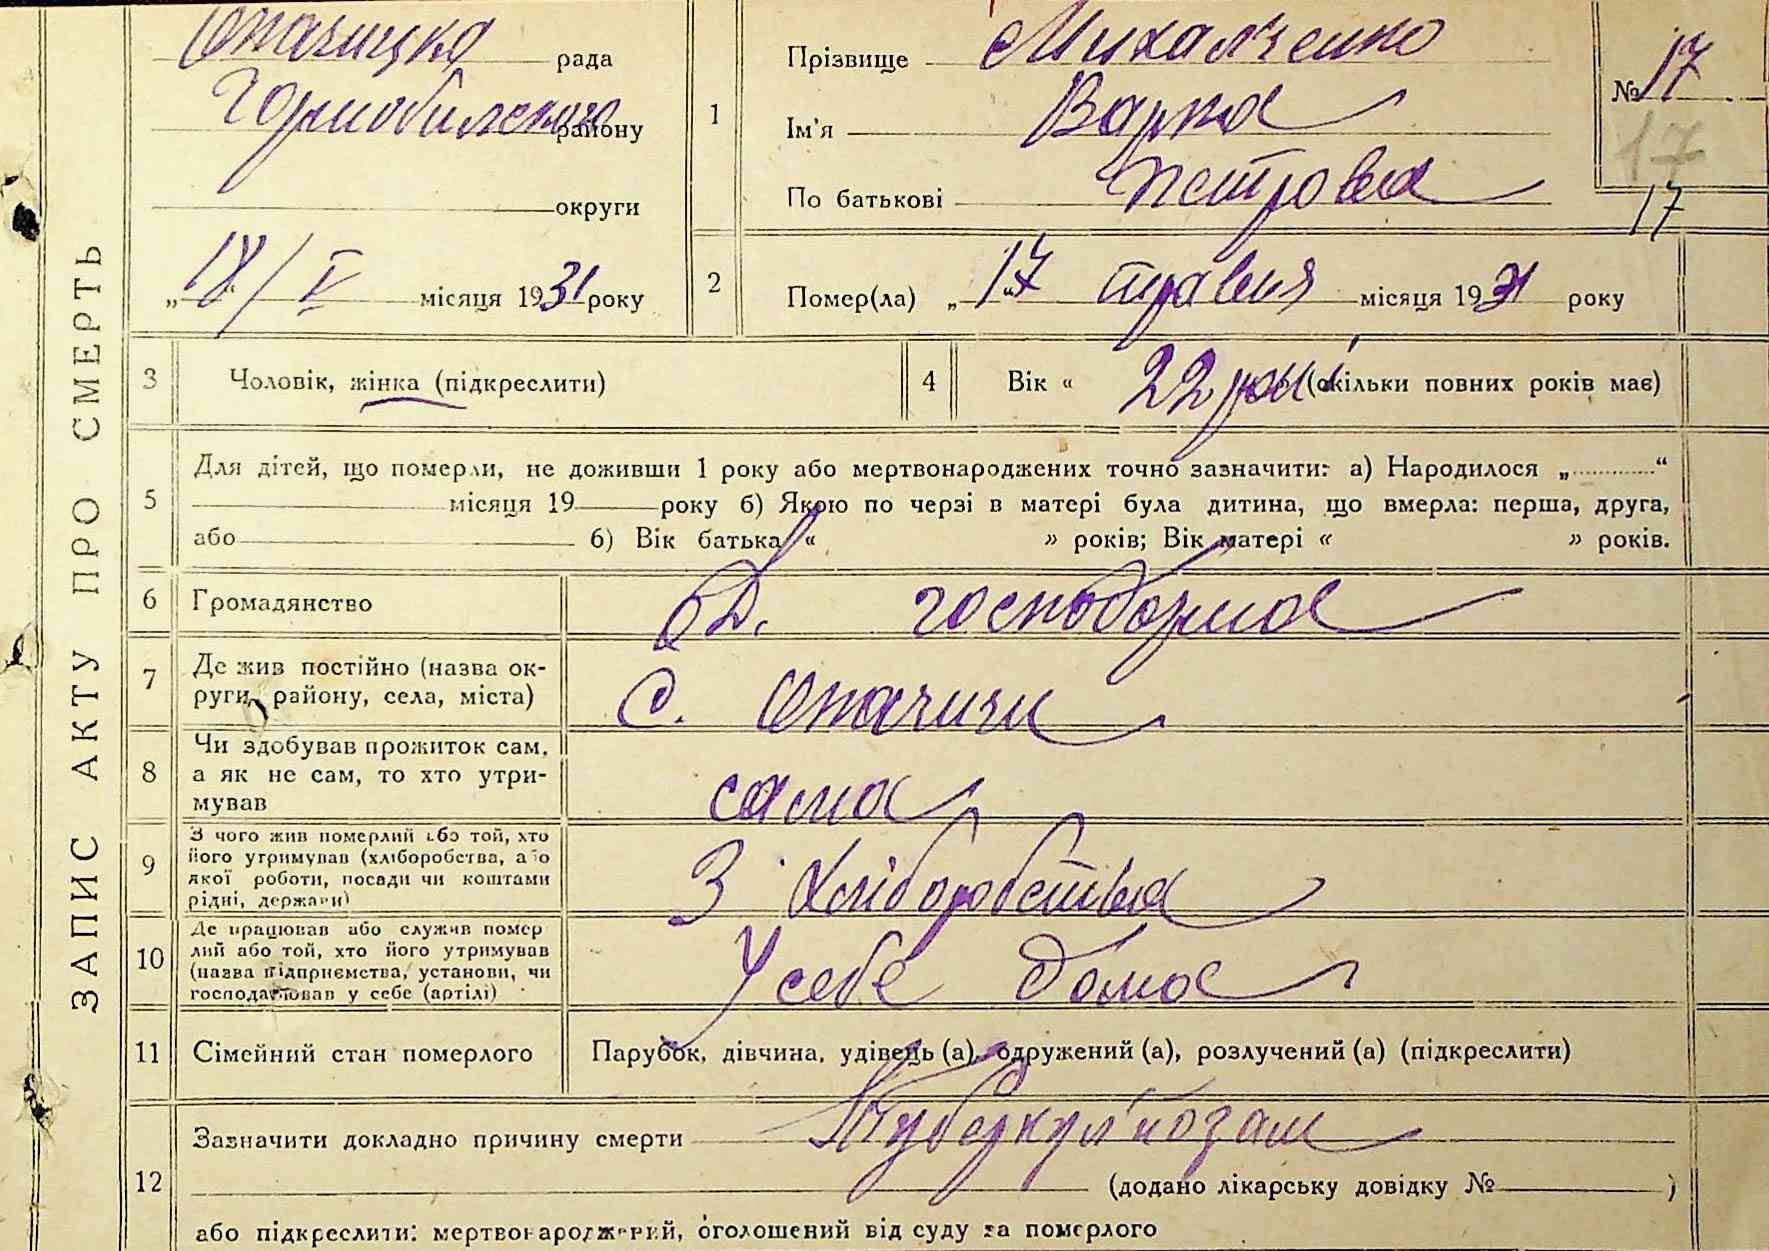 ЗАПИС АКТУ ПРО СМЕРТЬ
Опачицка рада
Чорнобильского району
округи
„18/V“ місяця 1931 року
1
Прізвище Михальченко
Ім'я Варка
По батькові Петрова
№ 17
17
17
2
Помер(ла) „17“ травня місяця 1931 року
3 Чоловік, жінка (підкреслити)
4 Вік « 22 рокі (скільки повних років має)
5
Для дітей, що померли, не доживши 1 року або мертвонароджених точно зазначити: а) Народилося „ “
місяця 19 року б) Якою по черзі в матері була дитина, що вмерла: перша, друга,
або 6) Вік батька « » років; Вік матері « » років.
6 Громадянство бд. госпобарка
7 Де жив постійно (назва ок-
руги, району, села, міста)
С. Опачичи
8 Чи здобував прожиток сам,
а як не сам, то хто утри-
мував
сама
9 З чого жив померлий або той, хто
його утримував (хліборобства, або
якої роботи, посади чи коштами
рідні, держави)
З хліборобства
10 Де працював або служив помер
лий або той, хто його утримував
(назва підприємства, установи, чи
господарював у себе (артілі)
У себе дома
11 Сімейний стан померлого Парубок, дівчина, удівець (а), одружений (а), розлучений (а) (підкреслити)
12
Зазначити докладно причину смерти Туберкул'озам
(додано лікарську довідку № )
або підкреслити: мертвонароджений, оголошений від суду за померлого